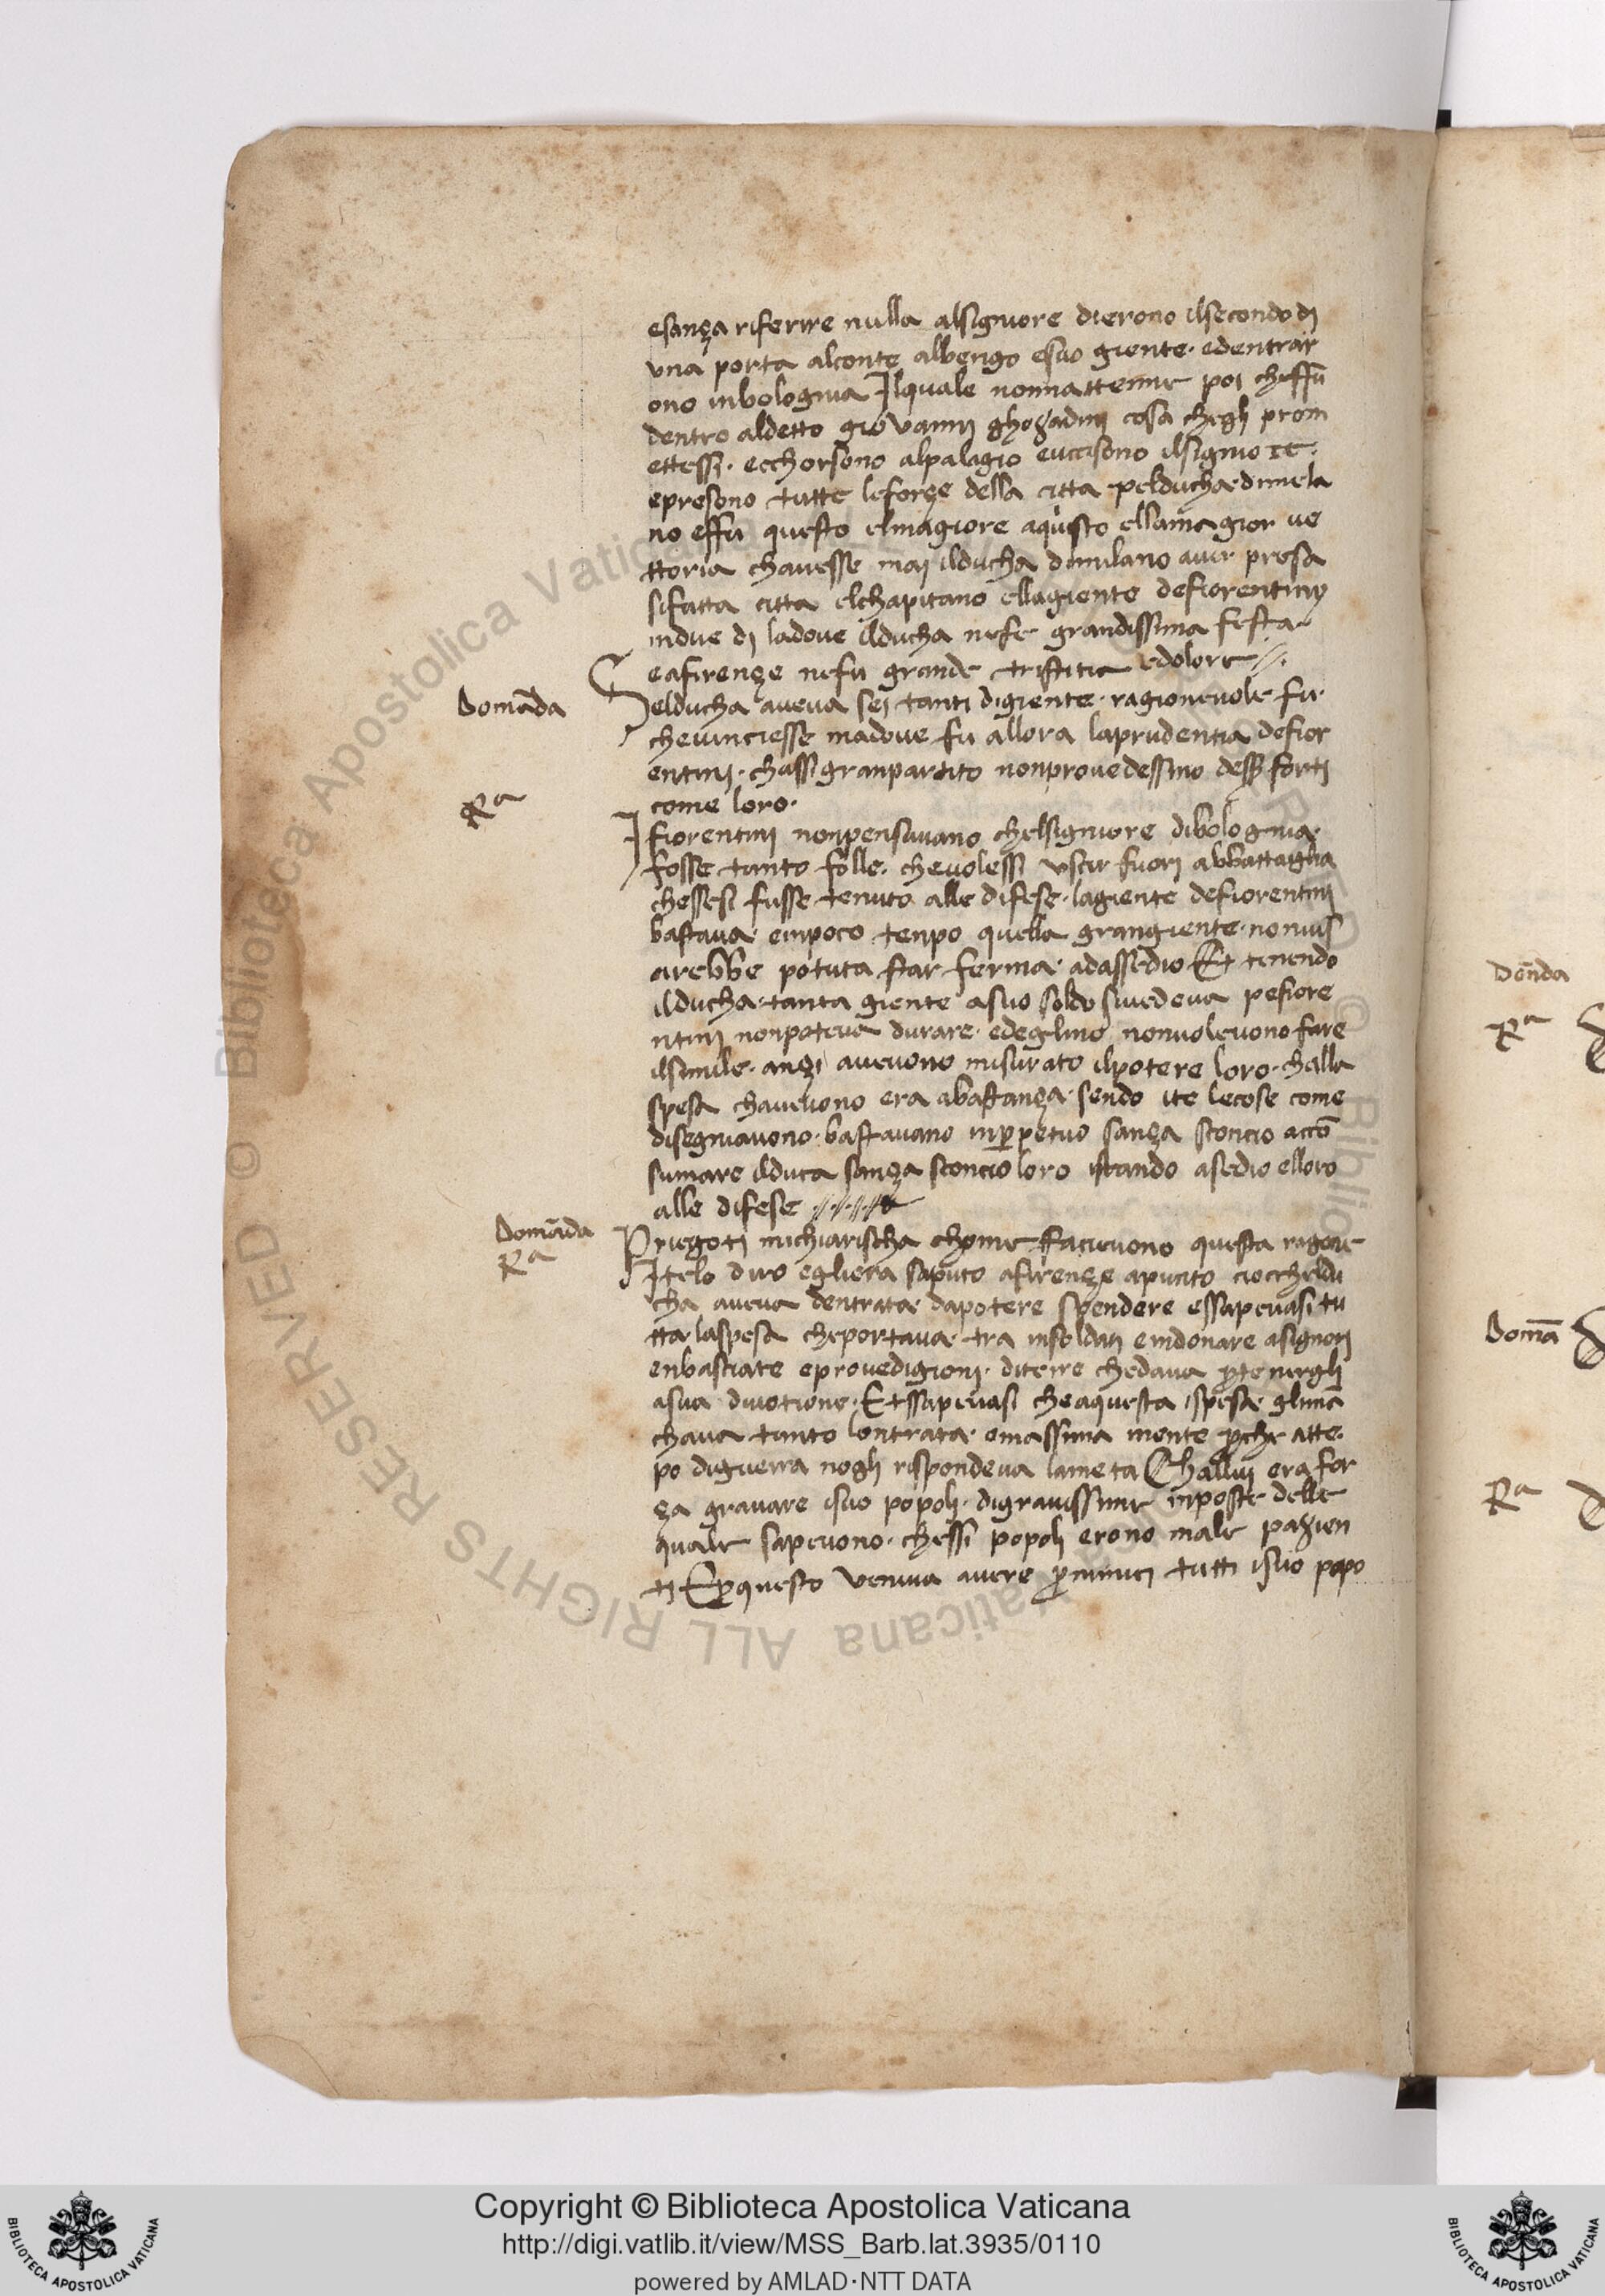 esança riferire nulla alsigniore dierono ilsecondo dj
una porta alconte alberigo esuo giente. edentrar
ono inbolognia Ilquale nonnattenne poi cheffu
dentro aldetto giovannj ghozadinj cosa cheglj prom
ettessj. ecchorsono alpalagio euccisono ilsignio re.
epresono tutte leforçe della citta pelducha dimela
no effu questo elmagiore aqisto ellamagior ue
ttoria chauesse maj ilducha dimilano auer presa
sifatta citta elchapitano ellagiente defiorentinj
indue dj ladoue ilducha nefe grandissima festa
eafirençe nefu grande tristitia edolore //.
Domāda
Selducha aueua sej tanti digiente. ragioneuole fu.
cheuinciesse madoue fu allora laprudentia defior
entinj. chassi granpartito nonprouedessino desser fortj
come loro.
Rª
I fiorentinj nonpensauano chelsigniore dibolognia
fosse tanto folle. cheuolessi uscir fuorj abbattaglia
chessesi fusse tenuto alle difese. lagiente defiorentinj
bastaua. empoco tenpo quella grangiente. nonuis
arebbe potuta star ferma. adassedio Et tenendo
ilducha. tanta giente asuo soldo siuedeua pefiore
ntinj nonpoteua durare. edeglino nonuoleuono fare
ilsimile. ançi aueuono misurato ilpotere loro. challa
spesa chaueuono era abastança. sendo ite lecose come
disegniauono. bastauano inperpetuo sança sconcio accō
sumare ilduca sança sconcio loro istando asedio elloro
alle difese
Domāda
Priegotj michiarischa chome faceuono questa ragone
Rª
Itelo diro egliera saputo afirençe apunto cioccheldu
cha aueua dentrata. dapotere spendere essapeuasi tu
tta laspesa cheportaua. tra insoldatj emdonare asignorj
enbasciate eprouedigionj. diterre chedaua ꝑtenerglj
asua diuotione. Etssapeuasi cheaquesta spesa. glimā
chaua tanto lontrata. emassima mente ꝑche atte.
po diguerra noglj rispondeua lameta Challuj era for
ça grauare isuo popolj. digrauissime inposte delle
quale sapeuono. chessi popolj erono male pazien
tj Eꝑquesto ueniua auere ꝑnimici tutti isuo popo
Dōnda
Rª
Domā
Rª
Copyright © Biblioteca Apostolica Vaticana
http://digi.vatlib.it/view/MSS_Barb.lat.3935/0110
powered by AMLAD·NTT DATA
BIBLIOTECA APOSTOLICA VATICANA
BIBLIOTECA APOSTOLICA VATICANA